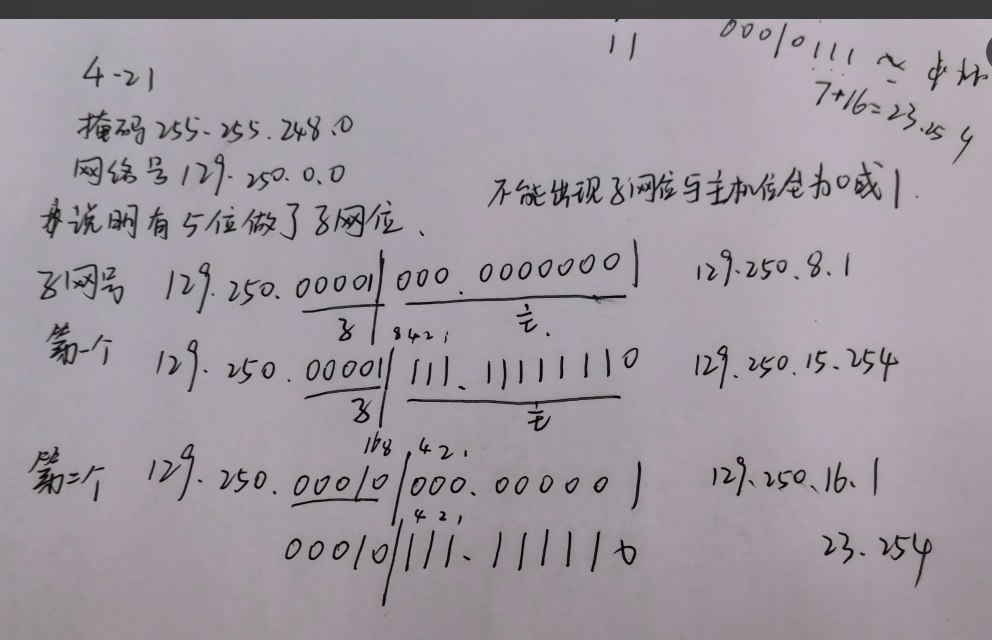 11
00010111 ~
7+16=23.254
4-21
掩码 255.255.248.0
网络号 129.250.0.0
不能出现子网位与主机位全为0或1.
说明有5位做了子网位.
子网号 129.250.00001|000.00000001 129.250.8.1
子 主.
8 4 2 1
第一个 129.250.00001|111.11111110 129.250.15.254
子 主
16 8 4 2 1
第二个 129.250.00010|000.000001 129.250.16.1
4 2 1
00010|111.111110 23.254